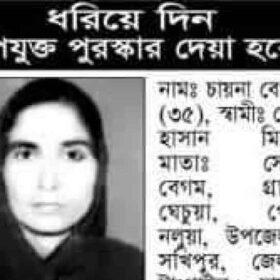 ধরিয়ে দিন
পযুক্ত পুরস্কার দেয়া হবে
নামঃ চায়না বে
(৩৫), স্বামীঃ
হাসান মি
মাতাঃ সে
বেগম, গ্রা
ঘেচুয়া,
নলুয়া, উপজে
সখিপুর, জেল